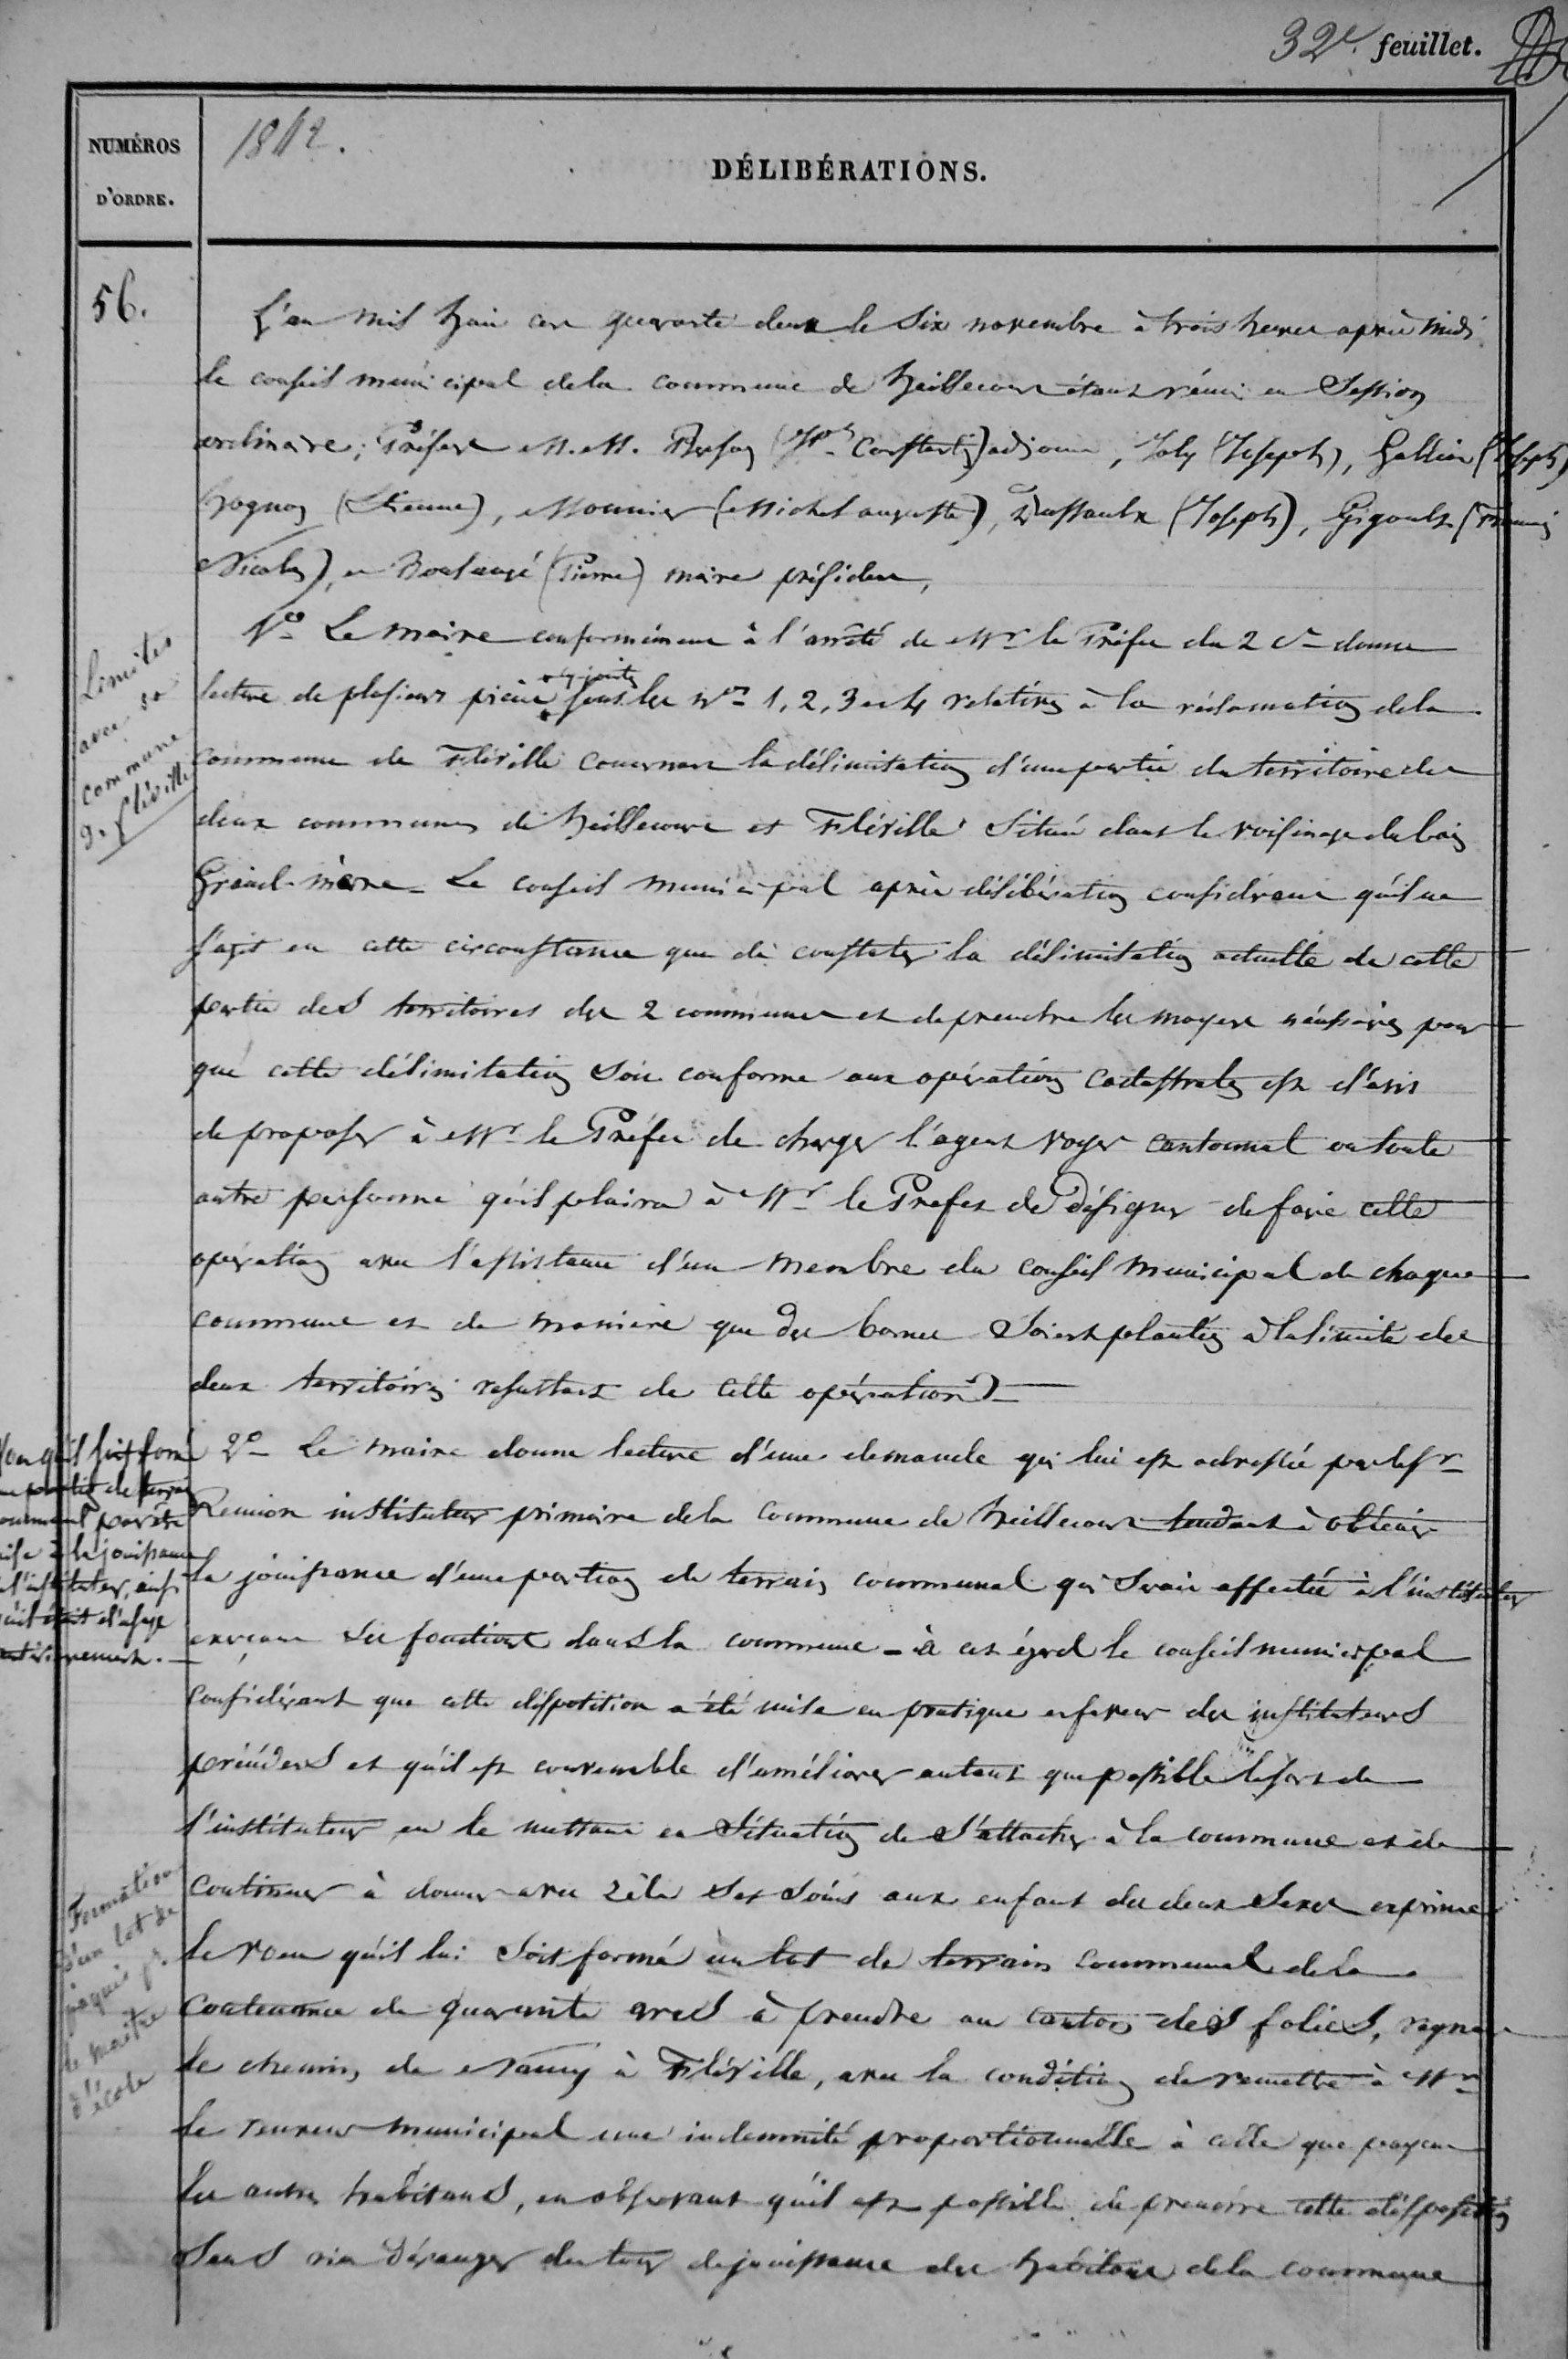 32e. feuillet.
NUMÉROS
D'ORDRE.
1842.
DÉLIBÉRATIONS.
56.
L'an mil huit cent quarante deux le six novembre à trois heures après midi
le conseil municipal de la commune de heillecourt étant réuni en session
ordinaire; Présens M.M. (Jph Constantin) adjoint, Joly (Joseph), Gallion (Joseph)
hognon (Etienne), Mounier (Michel auguste), Dussaulx (Joseph), Gigoult (François
Nicolas), et Boulangé (Pierre) maire président,
Limites
avec la
commune
de fléville
1o Le maire conformément à l'arrêté de Mr le Préfet du 2 Ct donne
lecture de plusieurs pièces ci-jointes sous les Nos 1, 2, 3 et 4 relatives à la réclamation de la
commune de Fléville concernant la délimitation d'une partie du territoire des
deux communes de heillecourt et Fléville situé dans le voisinage du bois
Grand-mère. Le conseil municipal après délibération considérant qu'il ne
s'agit en cette circonstance que de constater la délimitation actuelle de cette
partie des territoires des 2 communes et de prendre les moyens nécessaires pour
que cette délimitation soit conforme aux opérations cadastrales est d'avis
de proposer à Mr le Préfet de charger l'agent voyer cantonnal ou toute
autre personne qu'il plaira à Mr le Préfet de désigner de faire cette
opération avec l'assistance d'un membre du conseil municipal de chaque
commune et de manière que des bornes soient plantées à la limite des
deux territoires résultant de cette opération
Vœu qu'il soit formé
une portion de terrain
communal pour être
mise à la jouissance
de l'instituteur, ainsi
qu'il était d'usage
antérieurement.
2o Le maire donne lecture d'une demande qui lui est adressée par le Sr
Remion instituteur primaire de la commune de heillecourt tendant à obtenir
la jouissance d'une portion de terrain communal qui serait affectée à l'instituteur
exerçant ses fonctions dans la commune - à cet égard le conseil municipal
considérant que cette disposition a été mise en pratique en faveur des instituteurs
précédens et qu'il est convenable d'améliorer autant que possible le sort de
l'instituteur en le mettant en situation de s'attacher à la commune et de
Formation
d'un lot de
pâquis pr.
le maître
d'école
continuer à donner avec zèle ses soins aux enfans des deux sexes exprime
le vœu qu'il lui soit formé un lot de terrain communal de la
contenance de quarante ares à prendre au canton des folies, 
le chemin de Nancy à Fléville, avec la condition de remettre à Mr
le receveur municipal une indemnité proportionnelle à celle que payent
les autres habitans, en observant qu'il est possible de prendre cette disposition
sans rien déranger du tour de jouissance des habitans de la commune